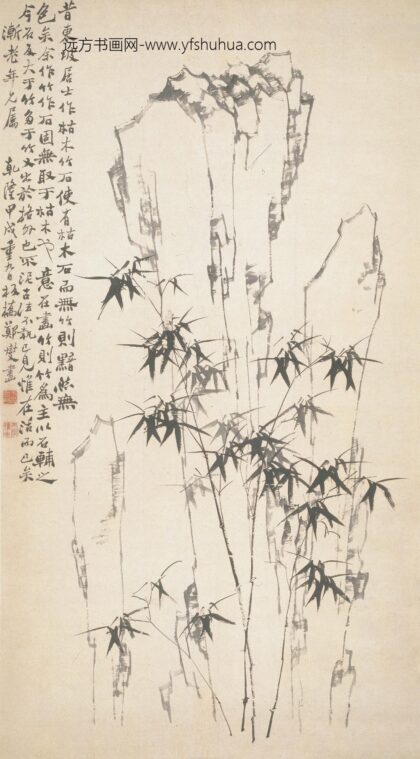 远方书画网-www.yfshuhua.com
昔東坡居士作枯木竹石使有枯木石而無竹則黯然無
色矣余作竹作石固無取于枯木也意在畫竹則竹為主以石輔之
今石反大于竹多于竹又出於格外也不泥古法不執己見惟在活而已矣
漸老年兄屬 乾隆甲戌重九日板橋鄭燮畫